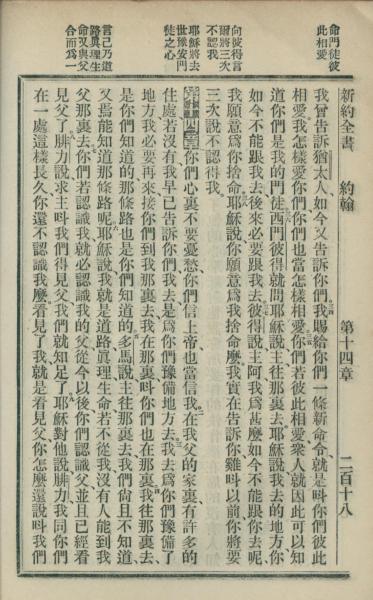 命門徒彼
此相愛
向彼得言
爾將三次
不認我
耶穌將去
世豫安門
徒之心
言己乃道
路眞理生
命又與父
合而爲一
新約全書
約翰
第十四章
二百十八
我曾告訴猶太人、如今又告訴你們、我賜給你們一條新命令、就是呌你們彼此
相愛、我怎樣愛你們、你們也當怎樣相愛、你們若彼此相愛、衆人就因此可以知
道你們是我的門徒、西門彼得就問耶穌說、主往那裏去、耶穌說、我去的地方、你
如今不能跟我去、後來必要跟我去、彼得說、主阿、我爲甚麼如今不能跟你去呢、
我願意爲你捨命、耶穌說、你願意爲我捨命麼、我實在告訴你、雞呌以前、你將要
三次說不認得我。
第十四章 你們心裏不要憂愁、你們信上帝、也當信我、在我父的家裏、有許多的
住處、若沒有、我早已告訴你們、我去是爲你們豫備地方去、我去爲你們豫備了
地方、我必要再來接你們、到我那裏去、我在那裏、呌你們也在那裏、我往那裏去、
是你們知道的、那條路也是你們知道的、多馬說、主往那裏去、我們尙且不知道、
又焉能知道那條路呢、耶穌說、我就是道路眞理生命、若不從我、沒有人能到我
父那裏去、你們若認識我、就必認識我的父、從今以後、你們認識父、並且已經看
見父了、腓力說、求主呌我們得見父、我們就知足了、耶穌對他說、腓力、我同你們
在一處這樣長久、你還不認識我麼、看見了我、就是看見父、你怎麼還說呌我們